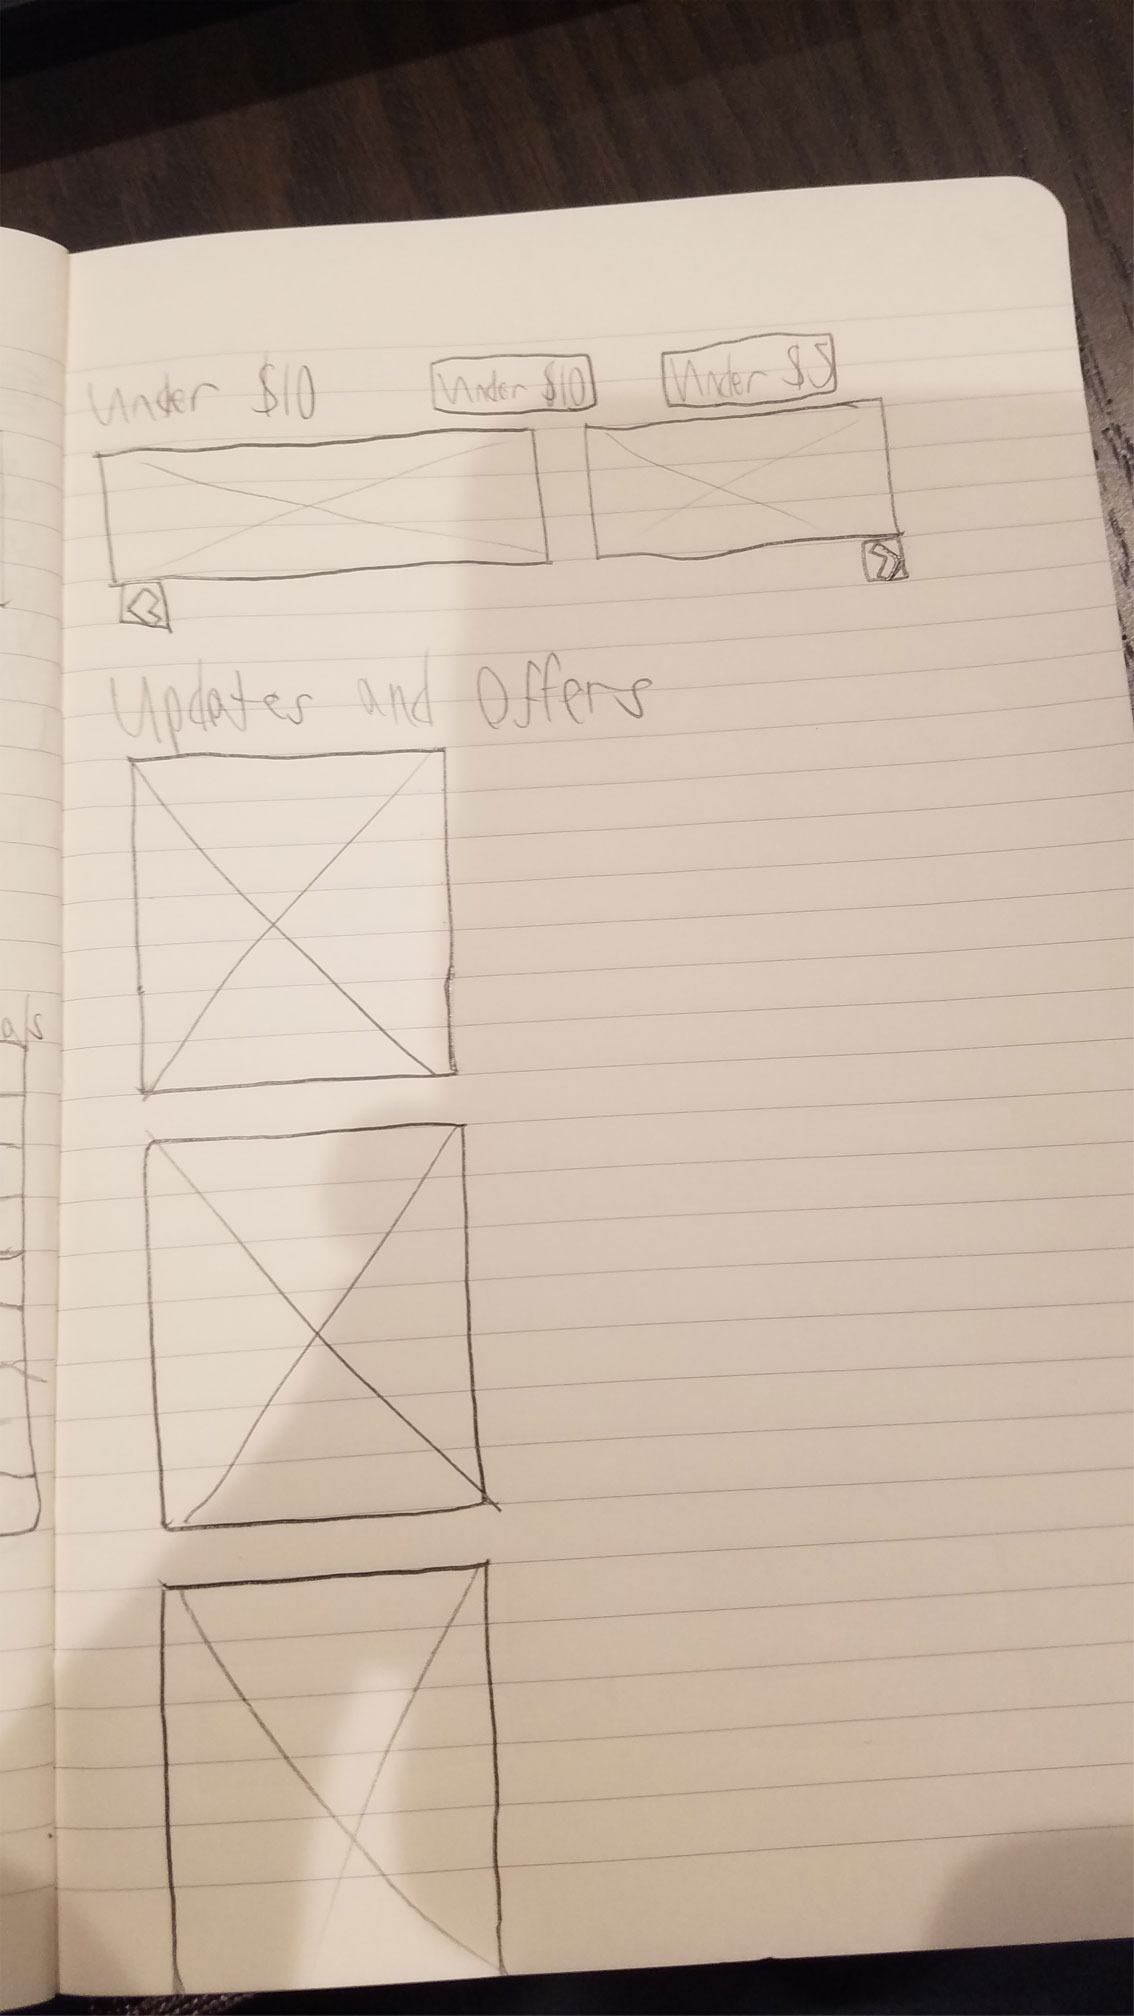 Under $10 Under $10 Under $5
Updates and Offers